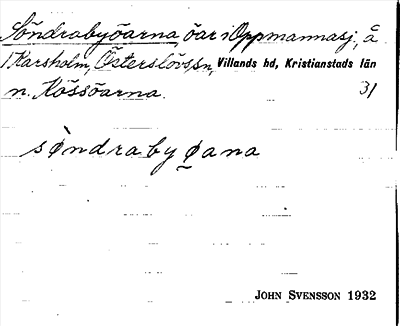 Söndrabyöarna, öar i Oppmannasj., å
/ Karsholm, Österslövs sn, Villands hd, Kristianstads län
n. Kössöarna. 31
sòndraby øana
JOHN SVENSSON 1932